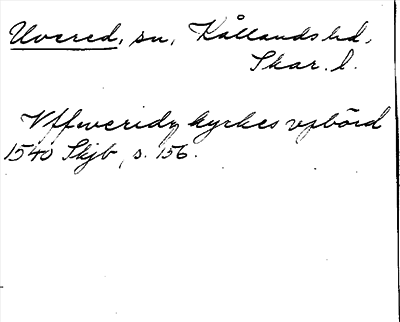 Uvered, sn, Kållands hd,
Skar. l.
Vffweridz kyrkes vpbörd
1540 Skjb, s. 156.